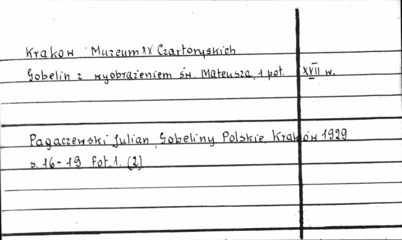 Kraków Muzeum XX Czartoryskich
Gobelin z wyobrażeniem św. Mateusza, 1 poł. XVII w.
Pagaczewski Julian, Gobeliny Polskie, Kraków 1929
s. 16-19 Fot. 1. (2)